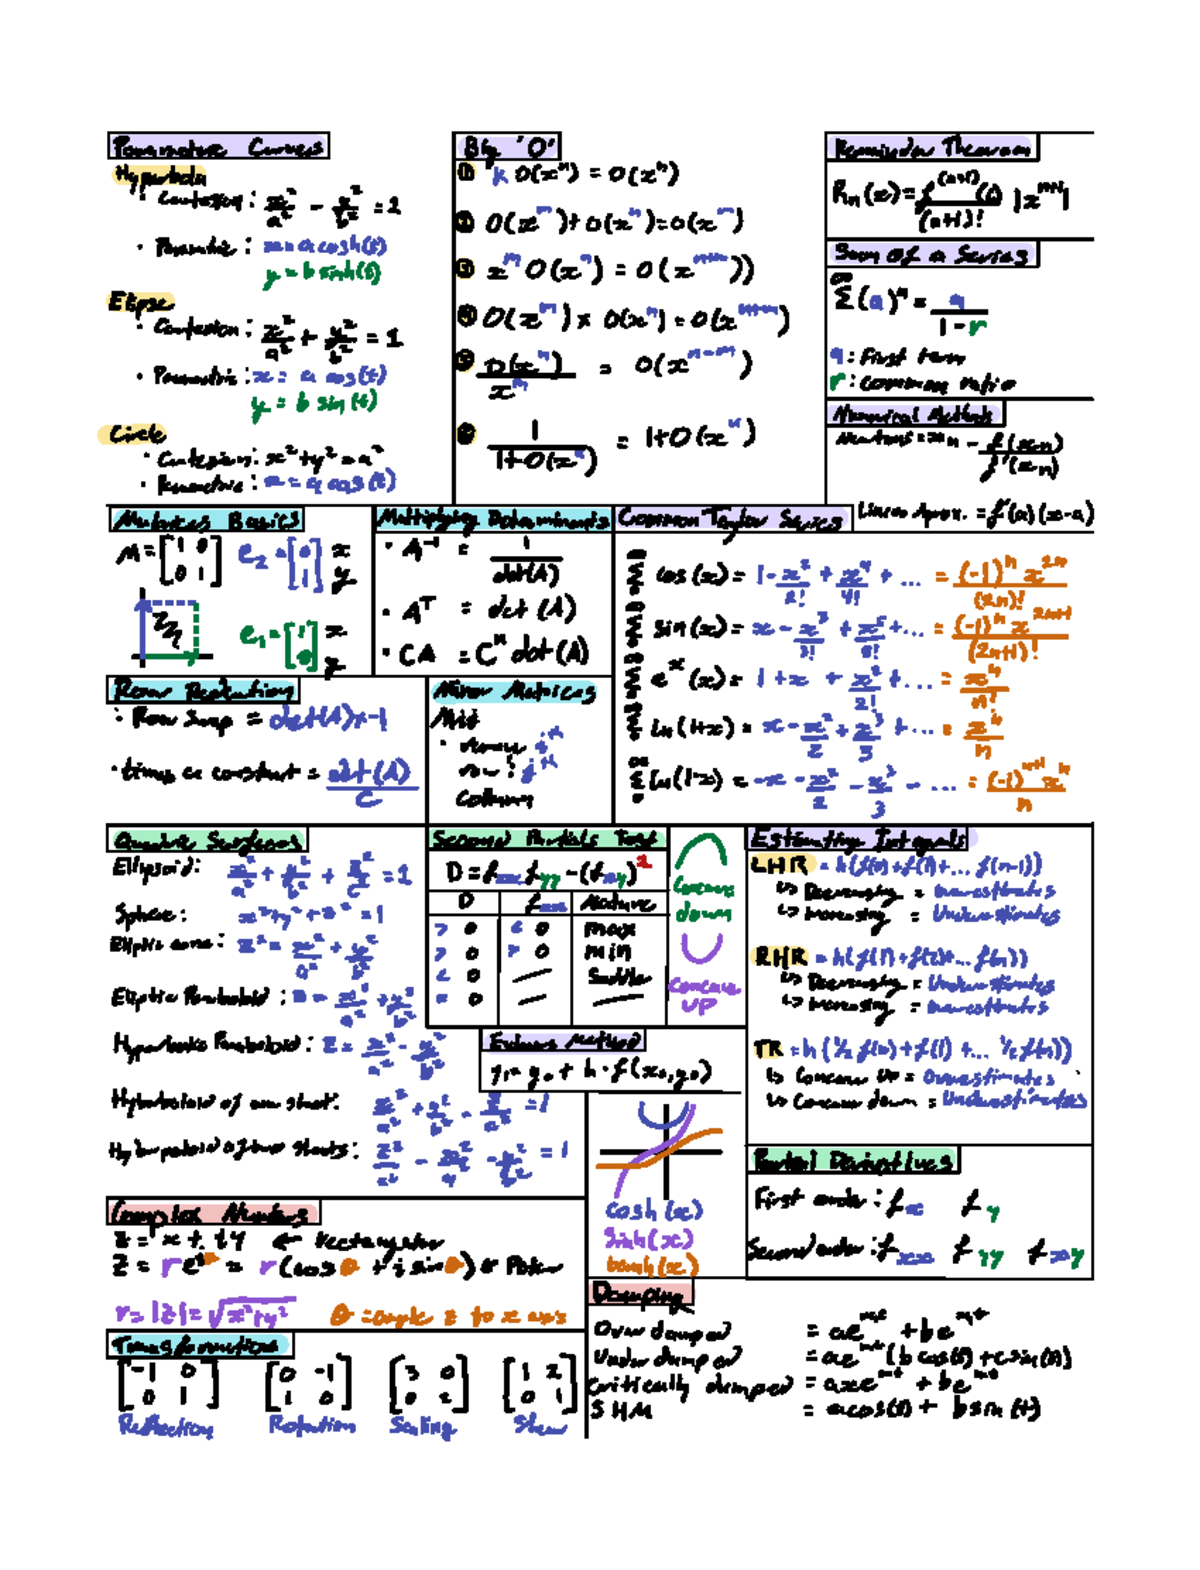 Parametric Curves
Hyperbola
· Cartesian : x²/a² - y²/b² = 1
· Parametric : x = a cosh(t)
y = b sinh(t)
Elipse
· Cartesian : x²/a² + y²/b² = 1
· Parametric : x = a cos(t)
y = b sin(t)
Circle
· Cartesian : x² + y² = a²
· Parametric : x = a cos(t)
Big 'O'
① k O(xⁿ) = O(xⁿ)
② O(x^m) + O(xⁿ) = O(x^m)
③ x^m O(xⁿ) = O(x^(n+m)))
④ O(x^m) × O(xⁿ) = O(x^(n+m))
⑤ O(xⁿ)/x^m = O(x^(n-m))
⑥ 1/(1+O(xⁿ)) = 1+O(xⁿ)
Remainder Theorem
Rn(x) = f^(n+1)(c)/(n+1)! |x^(n+1)|
Sum Of a Series
∞
Σ(a)ⁿ = a/(1-r)
a : First term
r : common ratio
Numerical Methods
Newtons = xn - f(xn)/f'(xn)
Linear Aprox. = f'(a)(x-a)
Matrices Basics
M = [1 0; 0 1] e2 = [0; 1] x y
e1 = [1; 0] x y
Multiplying Determinants
· A⁻¹ = 1/det(A)
· A^T = det(A)
· CA = Cⁿ det(A)
Common Taylor Series
cos(x) = 1 - x²/2! + x⁴/4! + ... = (-1)ⁿ x^(2n)/(2n)!
sin(x) = x - x³/3! + x⁵/5! + ... = (-1)ⁿ x^(2n+1)/(2n+1)!
e^x (x) = 1 + x + x²/2! + ... = xⁿ/n!
ln(1+x) = x - x²/2 + x³/3 + ... = xⁿ/n
ln(1-x) = -x - x²/2 - x³/3 - ... = (-1)^(n+1) xⁿ/n
Row Reduction
· Row Swap = det(A)x-1
· times a constant = det(A)/C
Minor Matrices
Mij
row : jth
Column
Quadric Surfaces
Ellipsoid: x²/a² + y²/b² + z²/c² = 1
Sphere: x² + y² + z² = 1
Elliptic cone: z² = x²/a² + y²/b²
Elliptic Paraboloid : z = x²/a² + y²/b²
Hyperbolic Paraboloid : z = x²/a² - y²/b²
Hyberboloid of one sheet:
Hyberboloid of two sheets:
Second Partials Test
D = fxx fyy - (fxy)²
D fxx Nature
> 0 < 0 max
> 0 > 0 min
< 0 — Saddle
= 0 — —
Concave down
Concave UP
Eulers Method
y₁ = y₀ + h · f(x₀, y₀)
Estimating Integrals
LHR = h(f(0) + f(1) + ... f(n-1))
↳ Decreasing = Overestimates
↳ Increasing = Underestimates
RHR = h(f(1) + f(2) + ... f(n))
↳ Decreasing = Underestimates
↳ Increasing = Overestimates
TR = h(½ f(0) + f(1) + ... ½ f(n))
↳ Concave Up = Overestimates
↳ Concave down = Underestimates
Partial Derivatives
First order : fx fy
Second order : fxx fyy fxy
cosh(x)
Sinh(x)
tanh(x)
Complex Numbers
z = x + iy ← rectangular
z = re^iθ = r(cosθ + i sinθ) ← Polar
r = |z| = √(x²+y²) θ = angle z to x axis
Transformations
[-1 0; 0 1] [0 -1; 1 0] [3 0; 0 2] [1 2; 0 1]
Reflection Rotation Scaling Shear
Damping
Over damped = ae^mt + be^mt
Under damped = ae^mt (b cos(t) + c sin(t))
Critically damped = axe^mt + be^mt
SHM = a cos(t) + b sin(t)